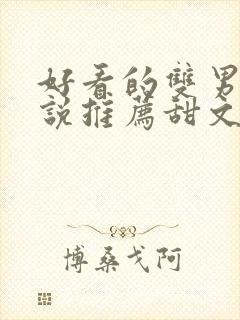 好看的雙男
說推薦甜文
博桑戈阿